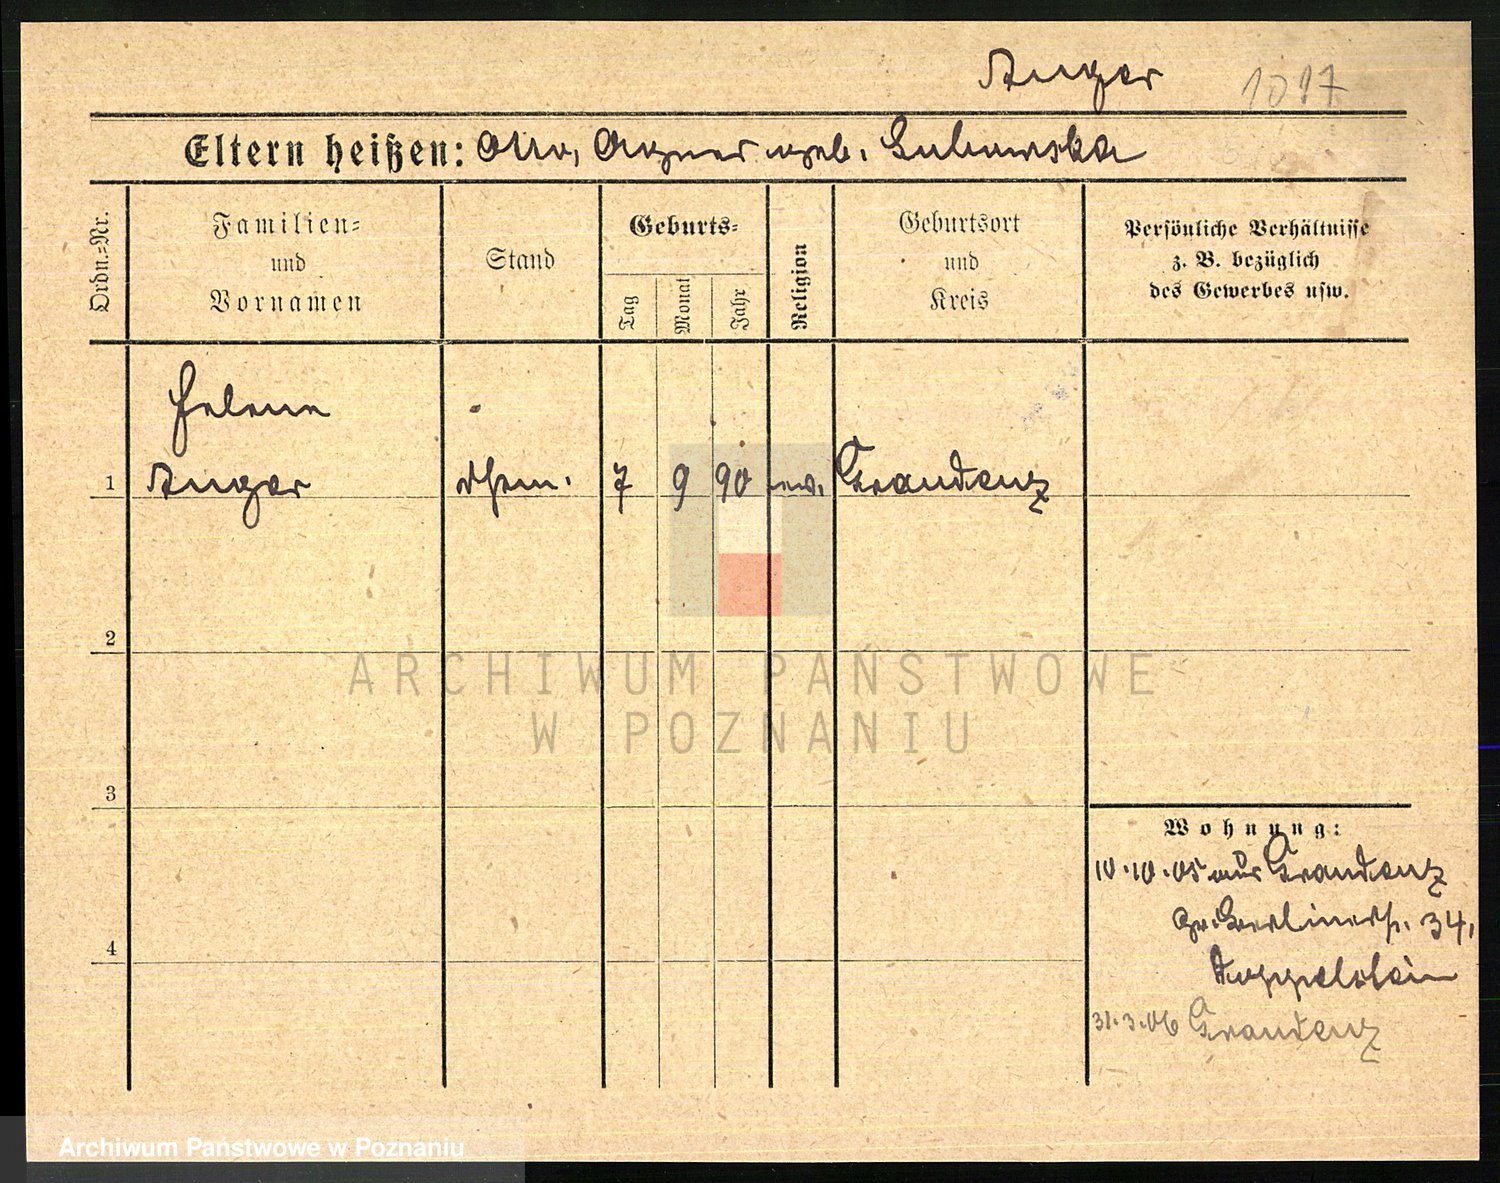 Anger 1017
Eltern heißen: Otto, Agnes geb. Lubowska
Ordn.-Nr.
Familien-
und
Vornamen
Stand
Geburts-
Tag
Monat
Jahr
Religion
Geburtsort
und
Kreis
Persönliche Verhältnisse
z. B. bezüglich
des Gewerbes usw.
Helene
1 Anger 7 9 90 ev. Graudenz
2
ARCHIWUM PAŃSTWOWE
W POZNANIU
3
Wohnung:
10.10.05 aus Graudenz
Gr. Berlinerstr. 34,
4
31.3.06 Graudenz
Archiwum Państwowe w Poznaniu